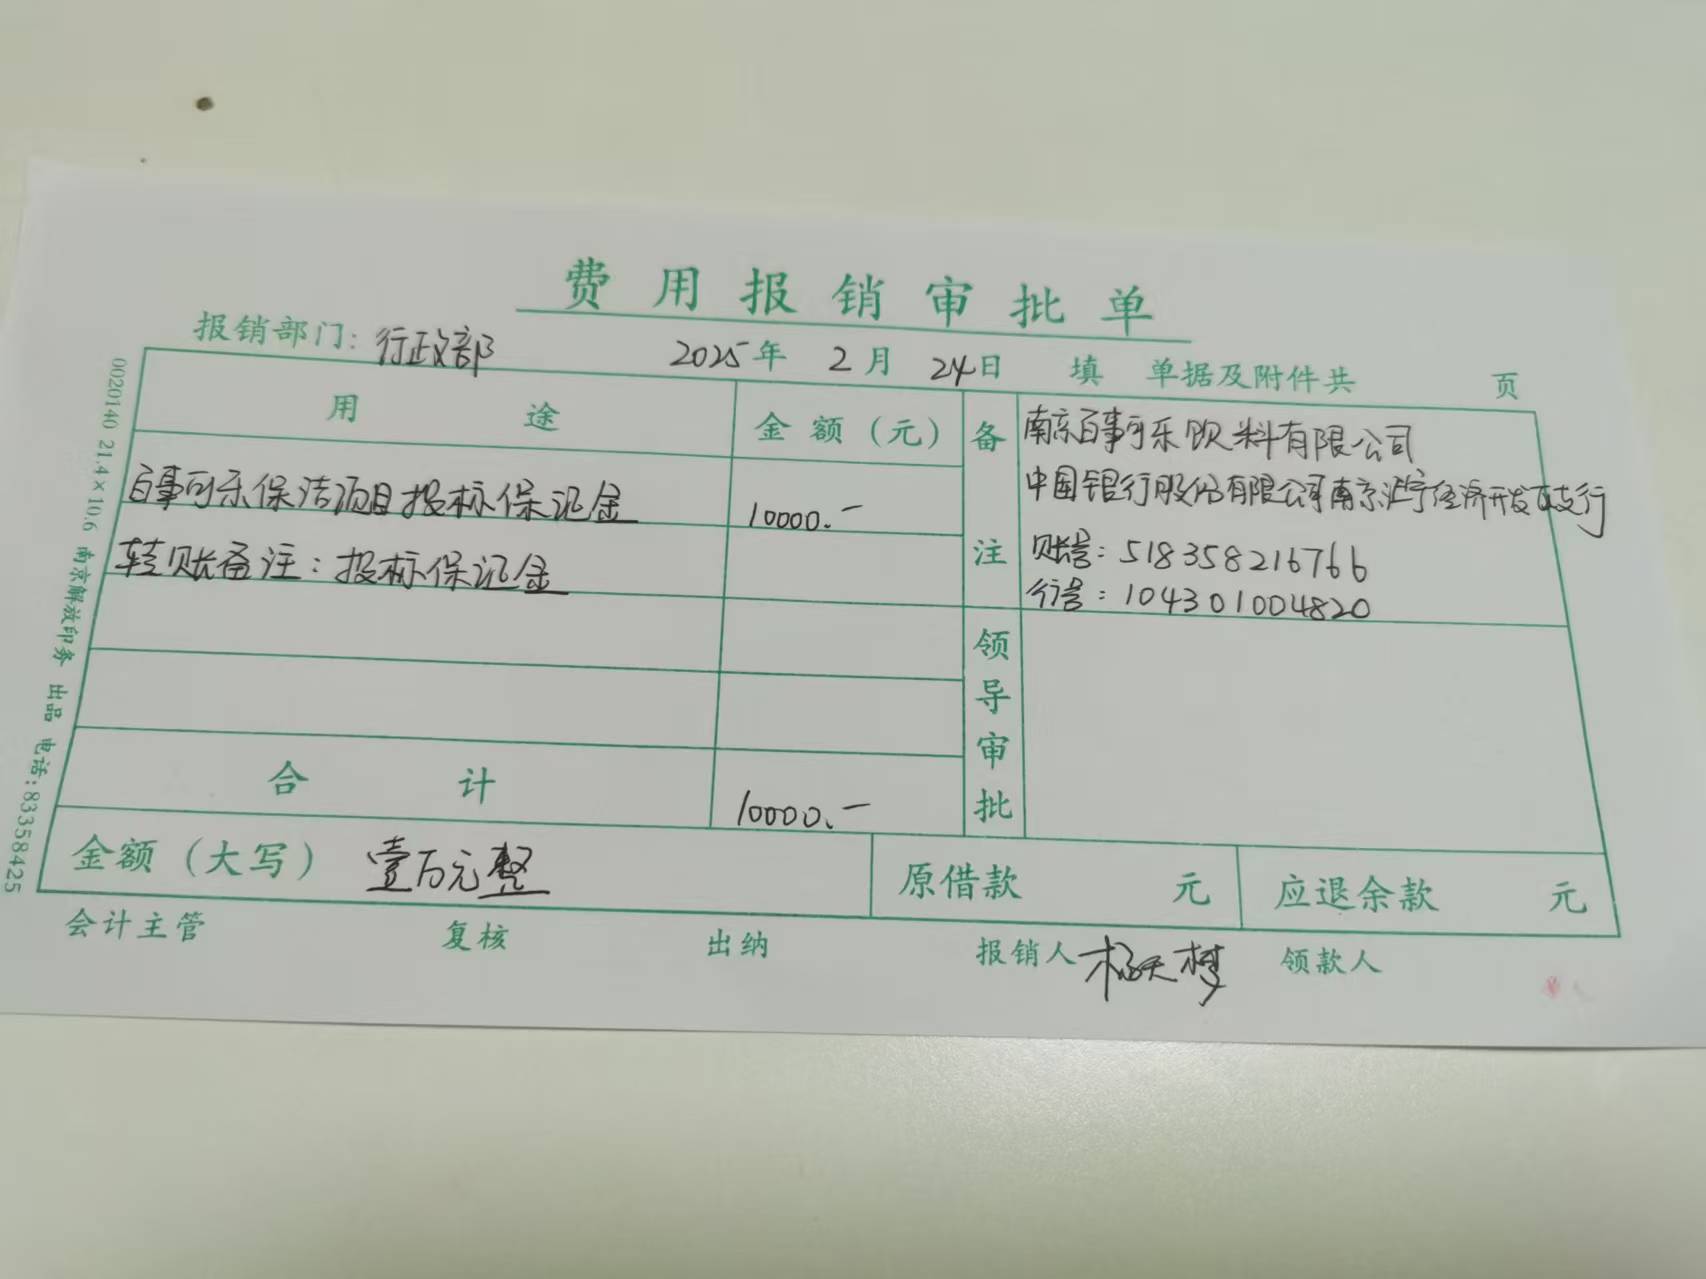 费用报销审批单
报销部门：行政部 2025年 2月 24日 填 单据及附件共 页
用途 金额（元） 备注
南京百事可乐饮料有限公司
中国银行股份有限公司南京江宁经济开发区支行
账号：518358216766
行号：104301004820
百事可乐保洁项目投标保证金 10000.-
转账备注：投标保证金
领导审批
合计 10000.-
金额（大写） 壹万元整 原借款 元 应退余款 元
会计主管 复核 出纳 报销人 杨天梦 领款人
0020140 21.4×10.6 南京解放印务 出品 电话:83358425